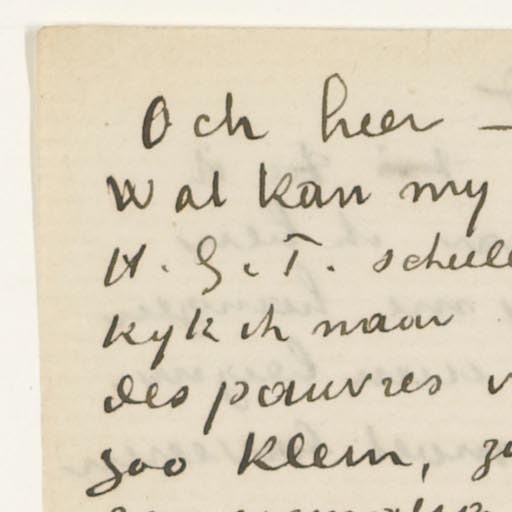 Och heer —
wat kan my
H. G. T. schele
kyk ik naar
des pauvres v
zoo klein, zo